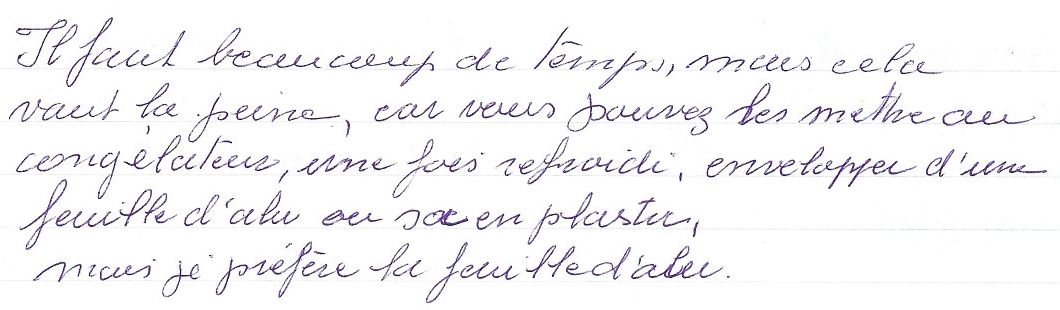 Il faut beaucoup de temps, mais cela
vaut la peine, car vous pouvez les mettre au
congélateur, une fois refroidi, envelopper d'une
feuille d'alu ou sac en plastic,
mais je préfère la feuille d'alu.